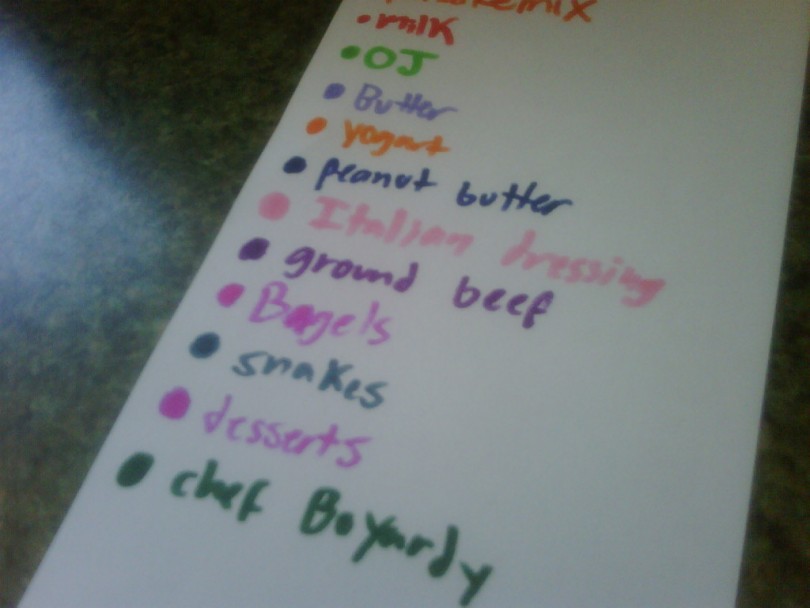 • milk
• OJ
• Butter
• yogart
• peanut butter
• Italian dressing
• ground beef
• Bagels
• snakes
• desserts
• chef Boyardy